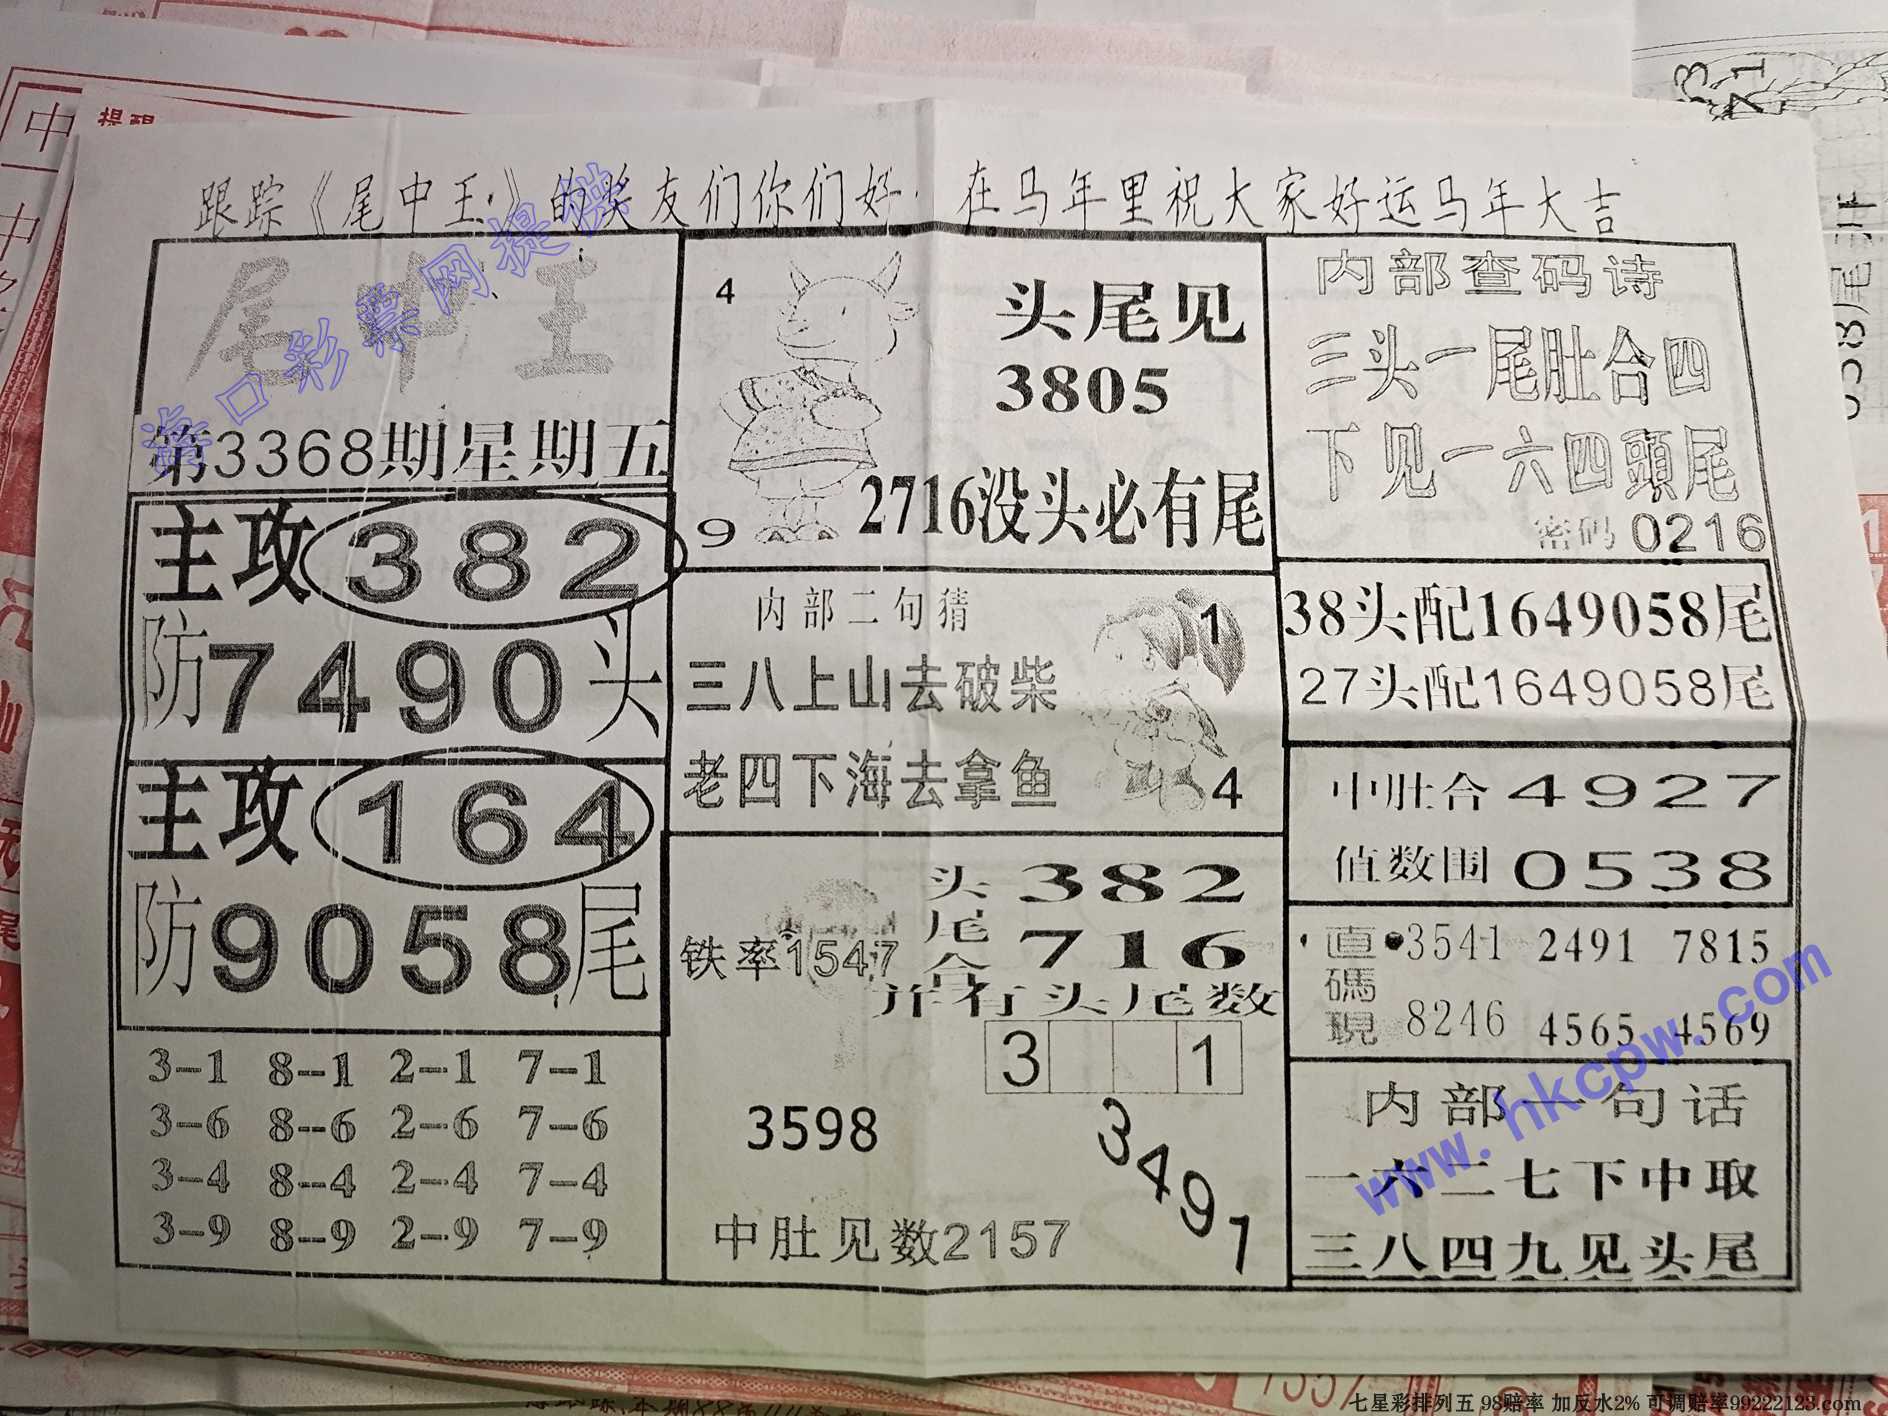 跟踪《尾中王》的奖友们你们好 在马年里祝大家好运马年大吉
尾中王
第3368期星期五
主攻 382
防 7490 头
主攻 164
防 9058 尾
3--1 8--1 2--1 7--1
3--6 8--6 2--6 7--6
3--4 8--4 2--4 7--4
3--9 8--9 2--9 7--9
4
头尾见
3805
9
2716没头必有尾
内部二句猜
1
三八上山去破柴
老四下海去拿鱼
4
铁率1547
头尾合 382
716
并有头尾数
3 1
3598
3497
中肚见数2157
内部查码诗
三头一尾肚合四
下见一六四頭尾
密码 0216
38头配1649058尾
27头配1649058尾
中肚合 4927
值数围 0538
直碼現
3541 2491 7815
8246 4565 4569
内部一句话
一六二七下中取
三八四九见头尾
海口彩票网提供
www.hkcpw.com
七星彩排列五 98赔率 加反水2% 可调赔率99222123.com
提醒
中
中
71
1557